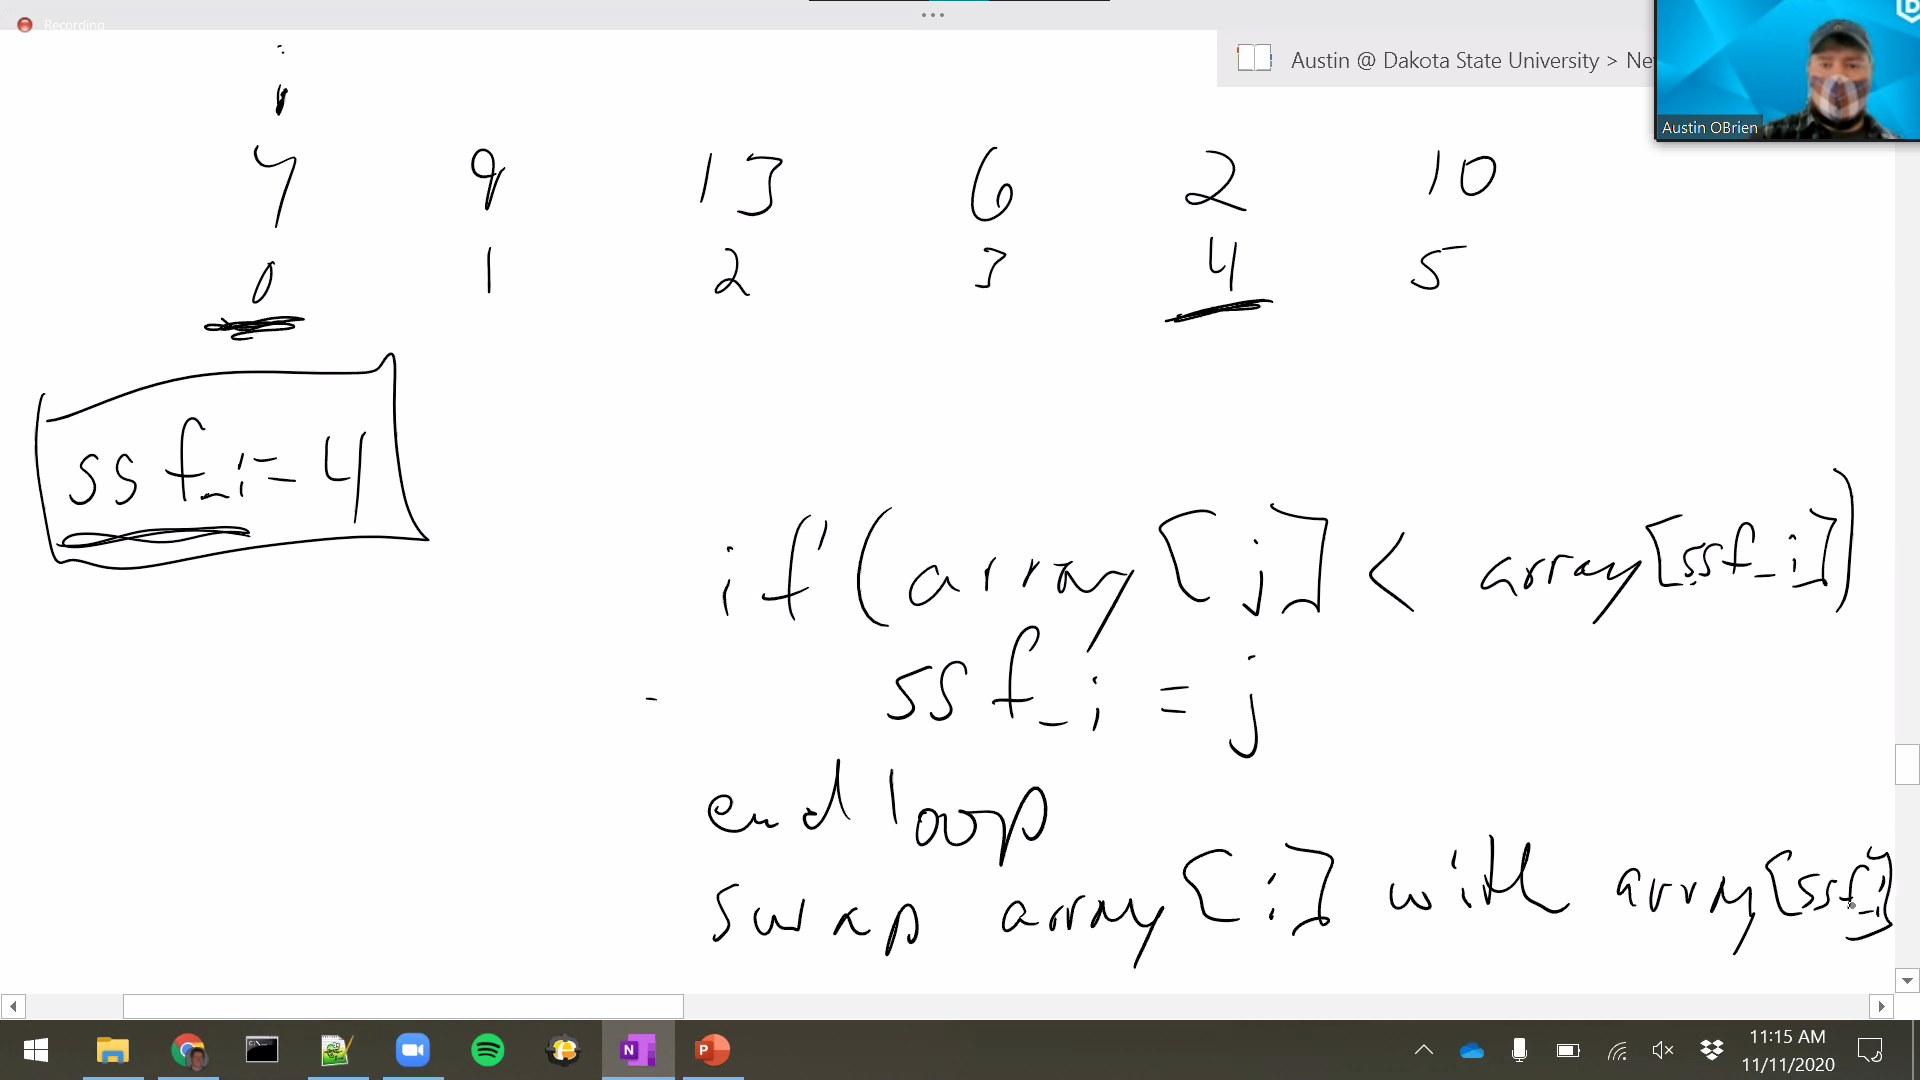 Recording
Austin @ Dakota State University > Ne
Austin OBrien
i
7 9 13 6 2 10
0 1 2 3 4 5
ssf_i = 4
if (array[j] < array[ssf_i])
ssf_i = j
end loop
swap array[i] with array[ssf_i]
11:15 AM
11/11/2020